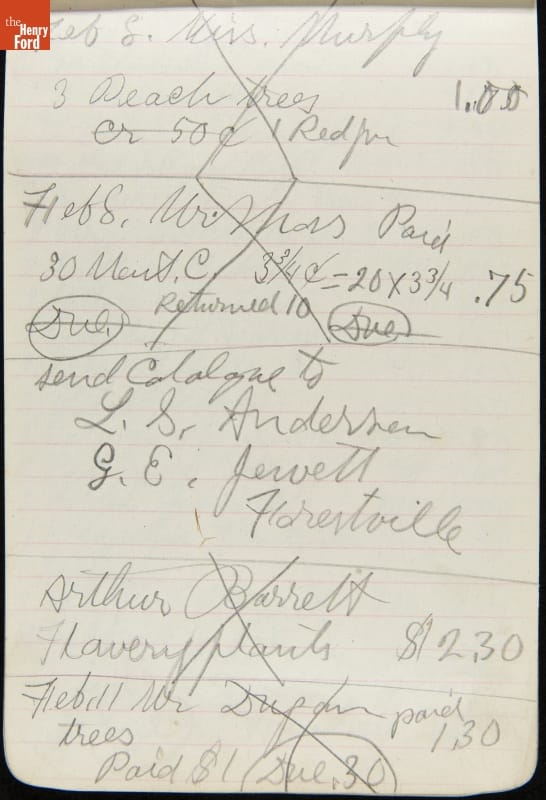 the
Henry
Ford
Feb 8. Miss. Murphy
3 Peach trees 1.00
Cr 50¢ 1 Red
Feb 8, Mr. Paid
30 C. 3 3/4 ¢ = 20 x 3 3/4 .75
Returned 10
Due. Due
send Catalogue to
L. S. Andersen
G. E. Jewett
Forestville
Arthur Barrett
Flavery plants $12.30
Feb. 11 Mr Dugan paid
trees 1.30
Paid $1 Due .30